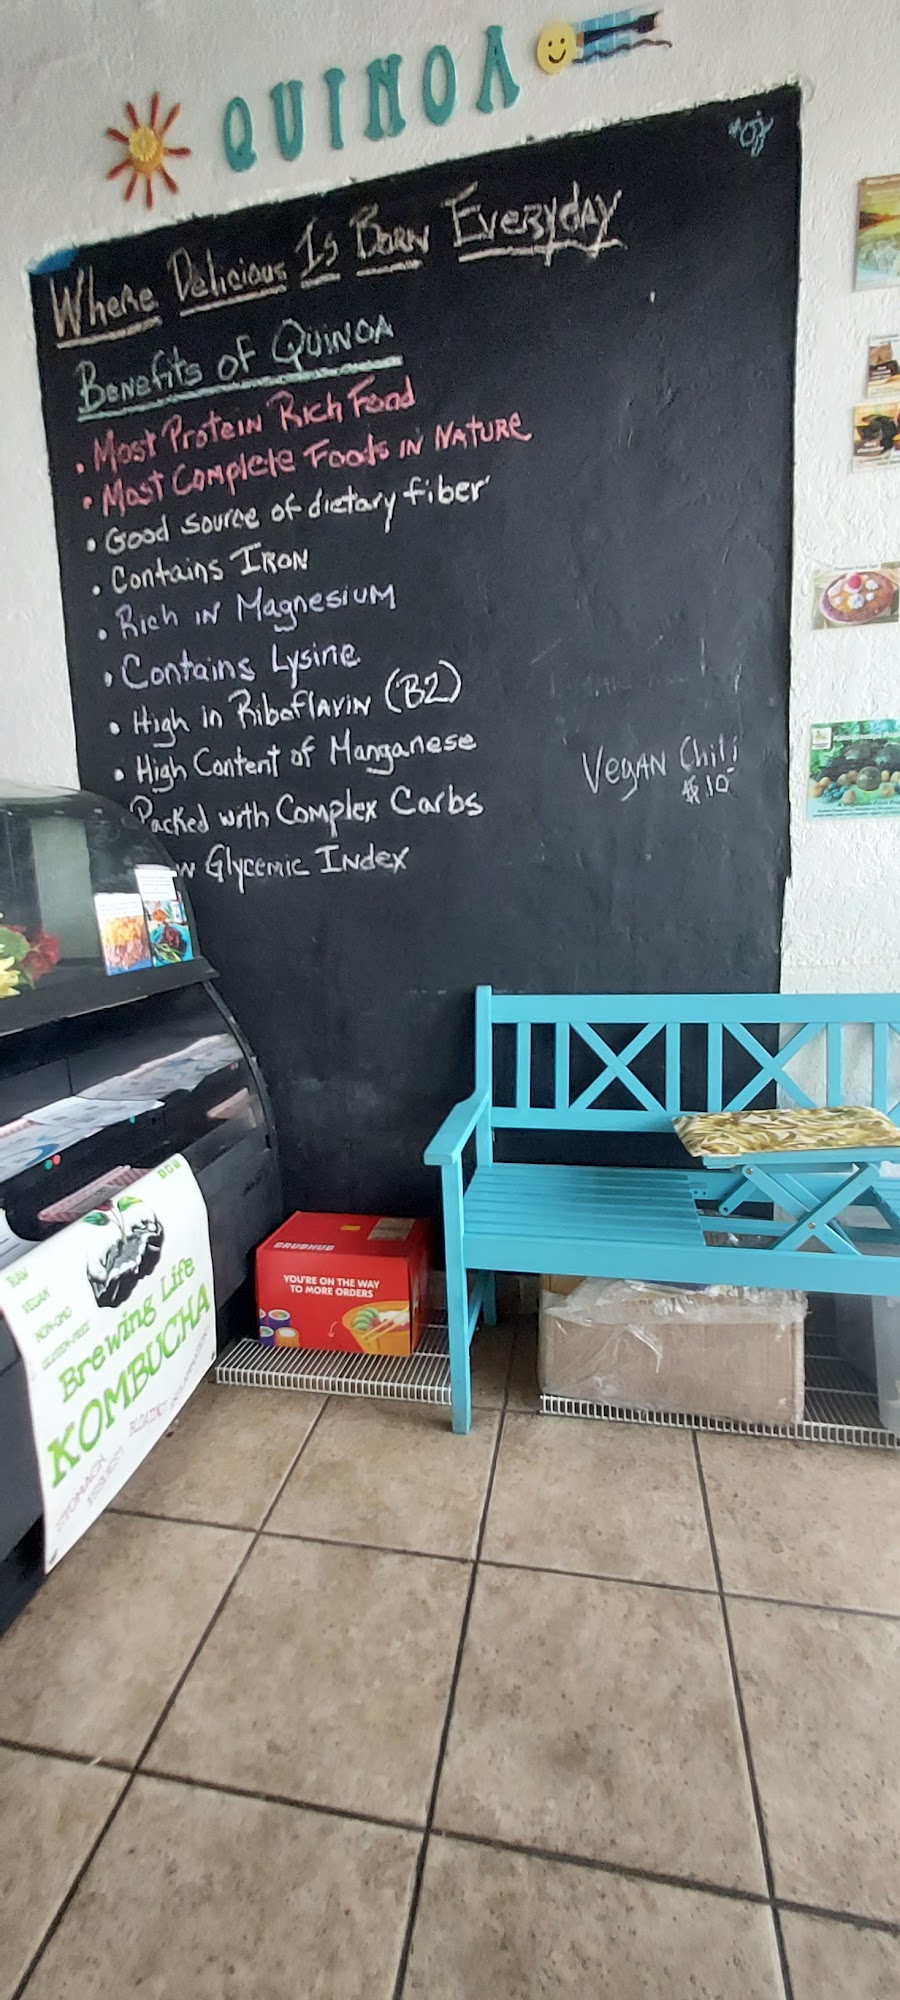 QUINOA
Where Delicious Is Born Everyday
Benefits of Quinoa
• Most Protein Rich Food
• Most Complete Foods in Nature
• Good source of dietary fiber
• Contains Iron
• Rich in Magnesium
• Contains Lysine
• High in Riboflavin (B2)
• High Content of Manganese
Packed with Complex Carbs
Glycemic Index
Vegan Chili
$10
GRUBHUB
YOU'RE ON THE WAY
TO MORE ORDERS
RAW
VEGAN
NON-GMO
GLUTEN-FREE
Brewing Life
KOMBUCHA
STOMACH
ISSUES!